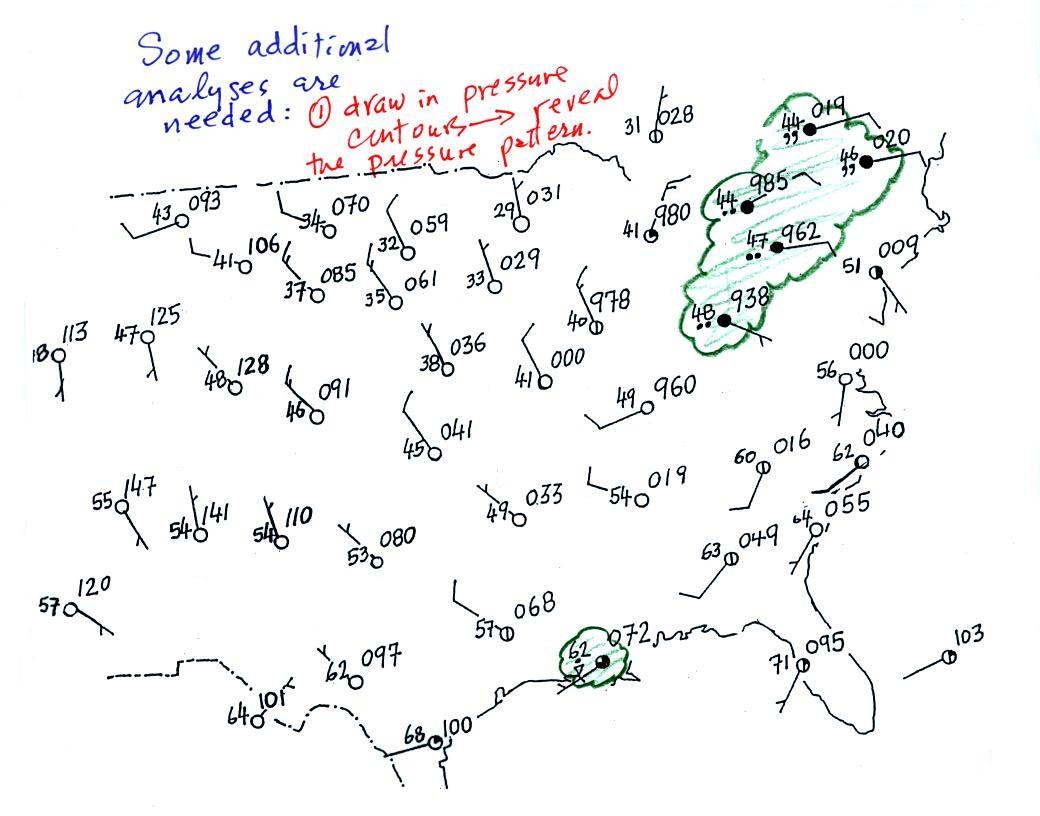 Some additional
analyses are
needed: ① draw in pressure
contours → reveal
the pressure pattern.
31 028
44 019
46 020
43 093
34 070
32 059
29 031
41 980
44 985
47 962
41 106
37 085
35 061
33 029
51 009
40 978
48 938
18 113
47 125
48 128
46 091
38 036
41 000
49 960
56 000
45 041
60 016
62 040
55 147
54 141
54 110
53 080
49 033
54 019
63 049
64 055
57 120
57 068
62 072
71 095
103
62 097
64 101
68 100